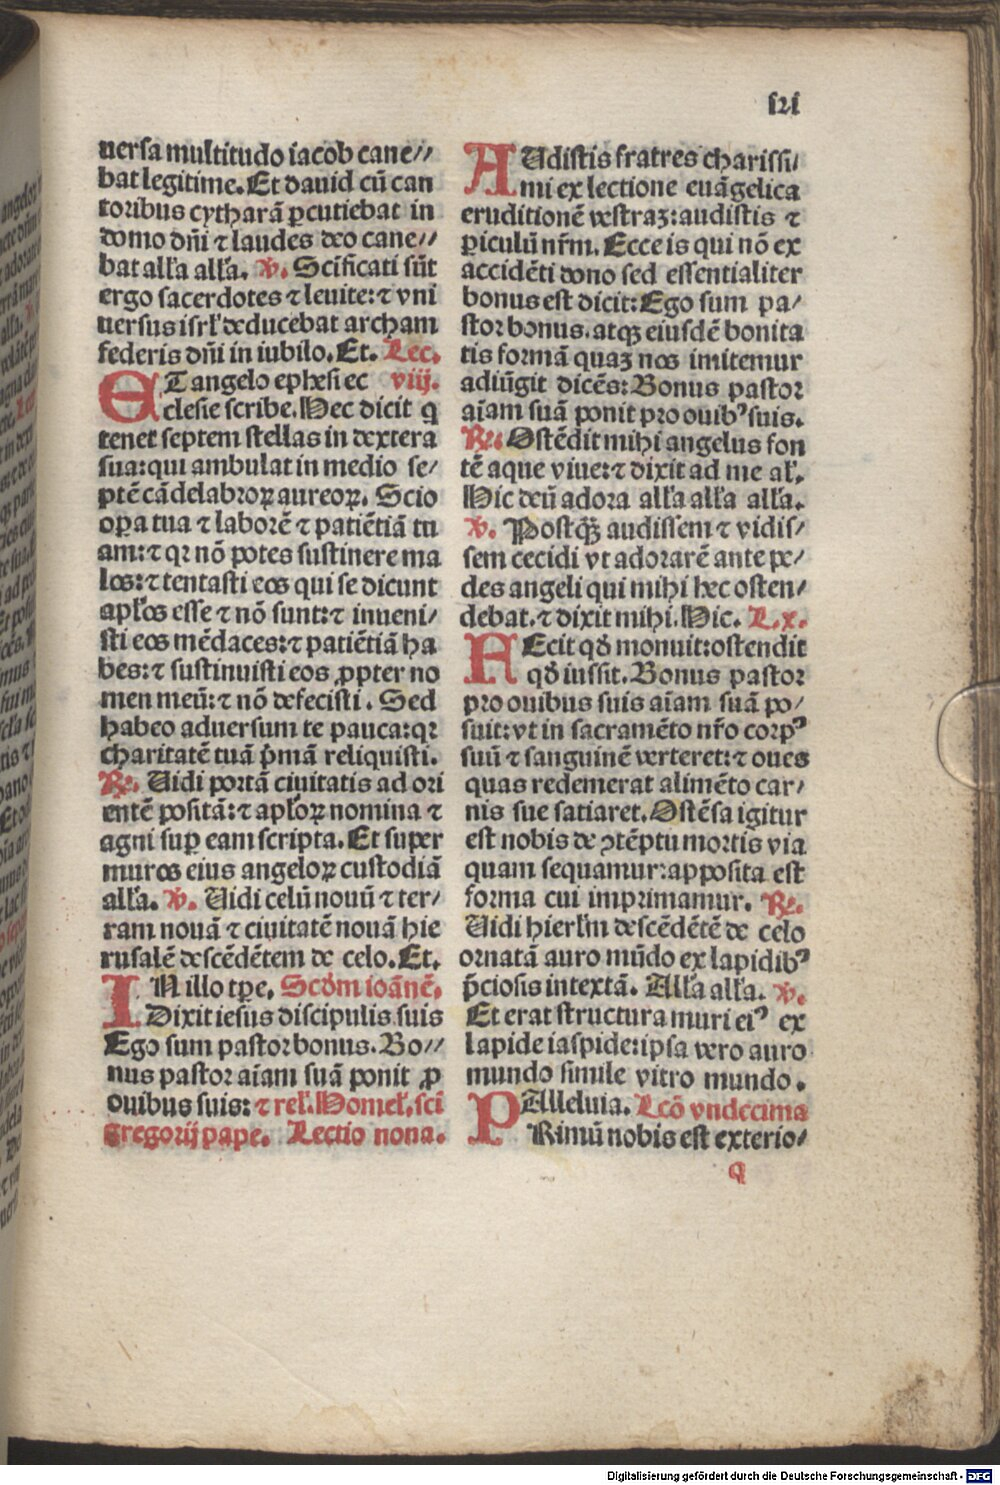 lxi
uersa multitudo iacob cane//
bat legitime. Et dauid cū can
toribus cytharā ꝑcutiebat in
domo dn̄i ⁊ laudes deo cane//
bat all'a all'a. ℣. Scīficati sūt
ergo sacerdotes ⁊ leuite: ⁊ vni
uersus isrl' deducebat archam
federis dn̄i in iubilo. Et. Lec.
ET angelo ephesi ec viij.
clesie scribe. Hec dicit q
tenet septem stellas in dextera
sua: qui ambulat in medio se/
ptē cādelabroꝝ aureoꝝ. Scio
oꝑa tua ⁊ laborē ⁊ patiētiā tu
am: ⁊ qꝛ nō potes sustinere ma
los: ⁊ tentasti eos qui se dicunt
apl'os esse ⁊ nō sunt: ⁊ inueni/
sti eos mēdaces: ⁊ patiētiā ha
bes: ⁊ sustinuisti eos ꝓpter no
men meū: ⁊ nō defecisti. Sed
habeo aduersum te pauca: qꝛ
charitatē tuā p̄mā reliquisti.
℟. Uidi portā ciuitatis ad ori
entē positā: ⁊ apl'oꝝ nomina ⁊
agni suꝑ eam scripta. Et super
muros eius angeloꝝ custodiā
all'a. ℣. Uidi celū nouū ⁊ ter/
ram nouā ⁊ ciuitatē nouā hie
rusalē descēdētem de celo. Et.
IN illo tꝑe. Scd'm ioānē.
Dixit iesus discipulis suis
Ego sum pastor bonus. Bo//
nus pastor aīam suā ponit ꝓ
ouibus suis: ⁊ rel'. Homel'. sci
gregorij pape. Lectio nona.
AUdistis fratres charissi/
mi ex lectione euāgelica
eruditionē vestraꝫ: audistis ⁊
ꝑiculū nr̄m. Ecce is qui nō ex
accidēti dono sed essentialiter
bonus est dicit: Ego sum pa/
stor bonus. atqꝫ eiusdē bonita
tis formā quaꝫ nos imitemur
adiūgit dicēs: Bonus pastor
aīam suā ponit pro ouibꝰ suis.
℟. Ostēdit mihi angelus fon
tē aque viue: ⁊ dixit ad me al'.
Hic deū adora all'a all'a all'a.
℣. Postꝙ̄ audissem ⁊ vidis/
sem cecidi vt adorarē ante pe/
des angeli qui mihi hec osten/
debat. ⁊ dixit mihi. Hic. L. x.
FEcit qd̄ monuit: ostendit
qd̄ iussit. Bonus pastor
pro ouibus suis aīam suā po/
suit: vt in sacramēto nr̄o corpꝰ
suū ⁊ sanguinē verteret: ⁊ oues
quas redemerat alimēto car/
nis sue satiaret. Ostēsa igitur
est nobis de ꝯtēptu mortis via
quam sequamur: apposita est
forma cui imprimamur. ℟.
Uidi hierl'm descēdētē de celo
ornatā auro mūdo ex lapidibꝰ
p̄ciosis intextā. All'a all'a. ℣.
Et erat structura muri eiꝰ ex
lapide iaspide: ipsa vero auro
mundo simile vitro mundo.
Alleluia. Lcō vndecima
PRimū nobis est exterio/
q
Digitalisierung gefördert durch die Deutsche Forschungsgemeinschaft - DFG